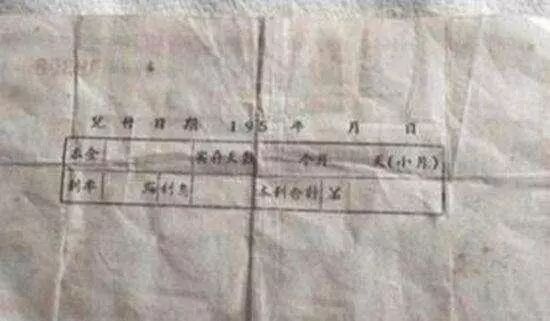 兑付日期 195 年 月 日
本金 实存天数 个月 天(小月)
利率 利息 本利合计